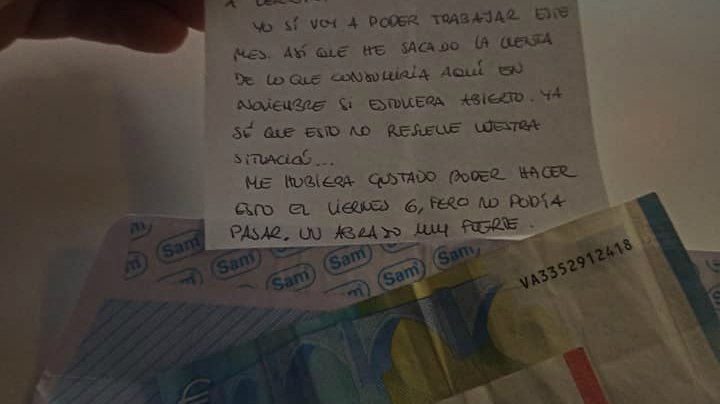 YO SÍ VOY A PODER TRABAJAR ESTE
MES. ASÍ QUE HE SACADO LA CUENTA
DE LO QUE CONSUMIRÍA AQUÍ EN
NOVIEMBRE SI ESTUVIERA ABIERTO. YA
SÉ QUE ESTO NO RESUELVE VUESTRA
SITUACIÓN...
ME HUBIERA GUSTADO PODER HACER
ESTO EL VIERNES 6, PERO NO PODÍA
PASAR. UN ABRAZO MUY FUERTE.
Sam Sam Sam Sam Sam
Sam
VA3352912418